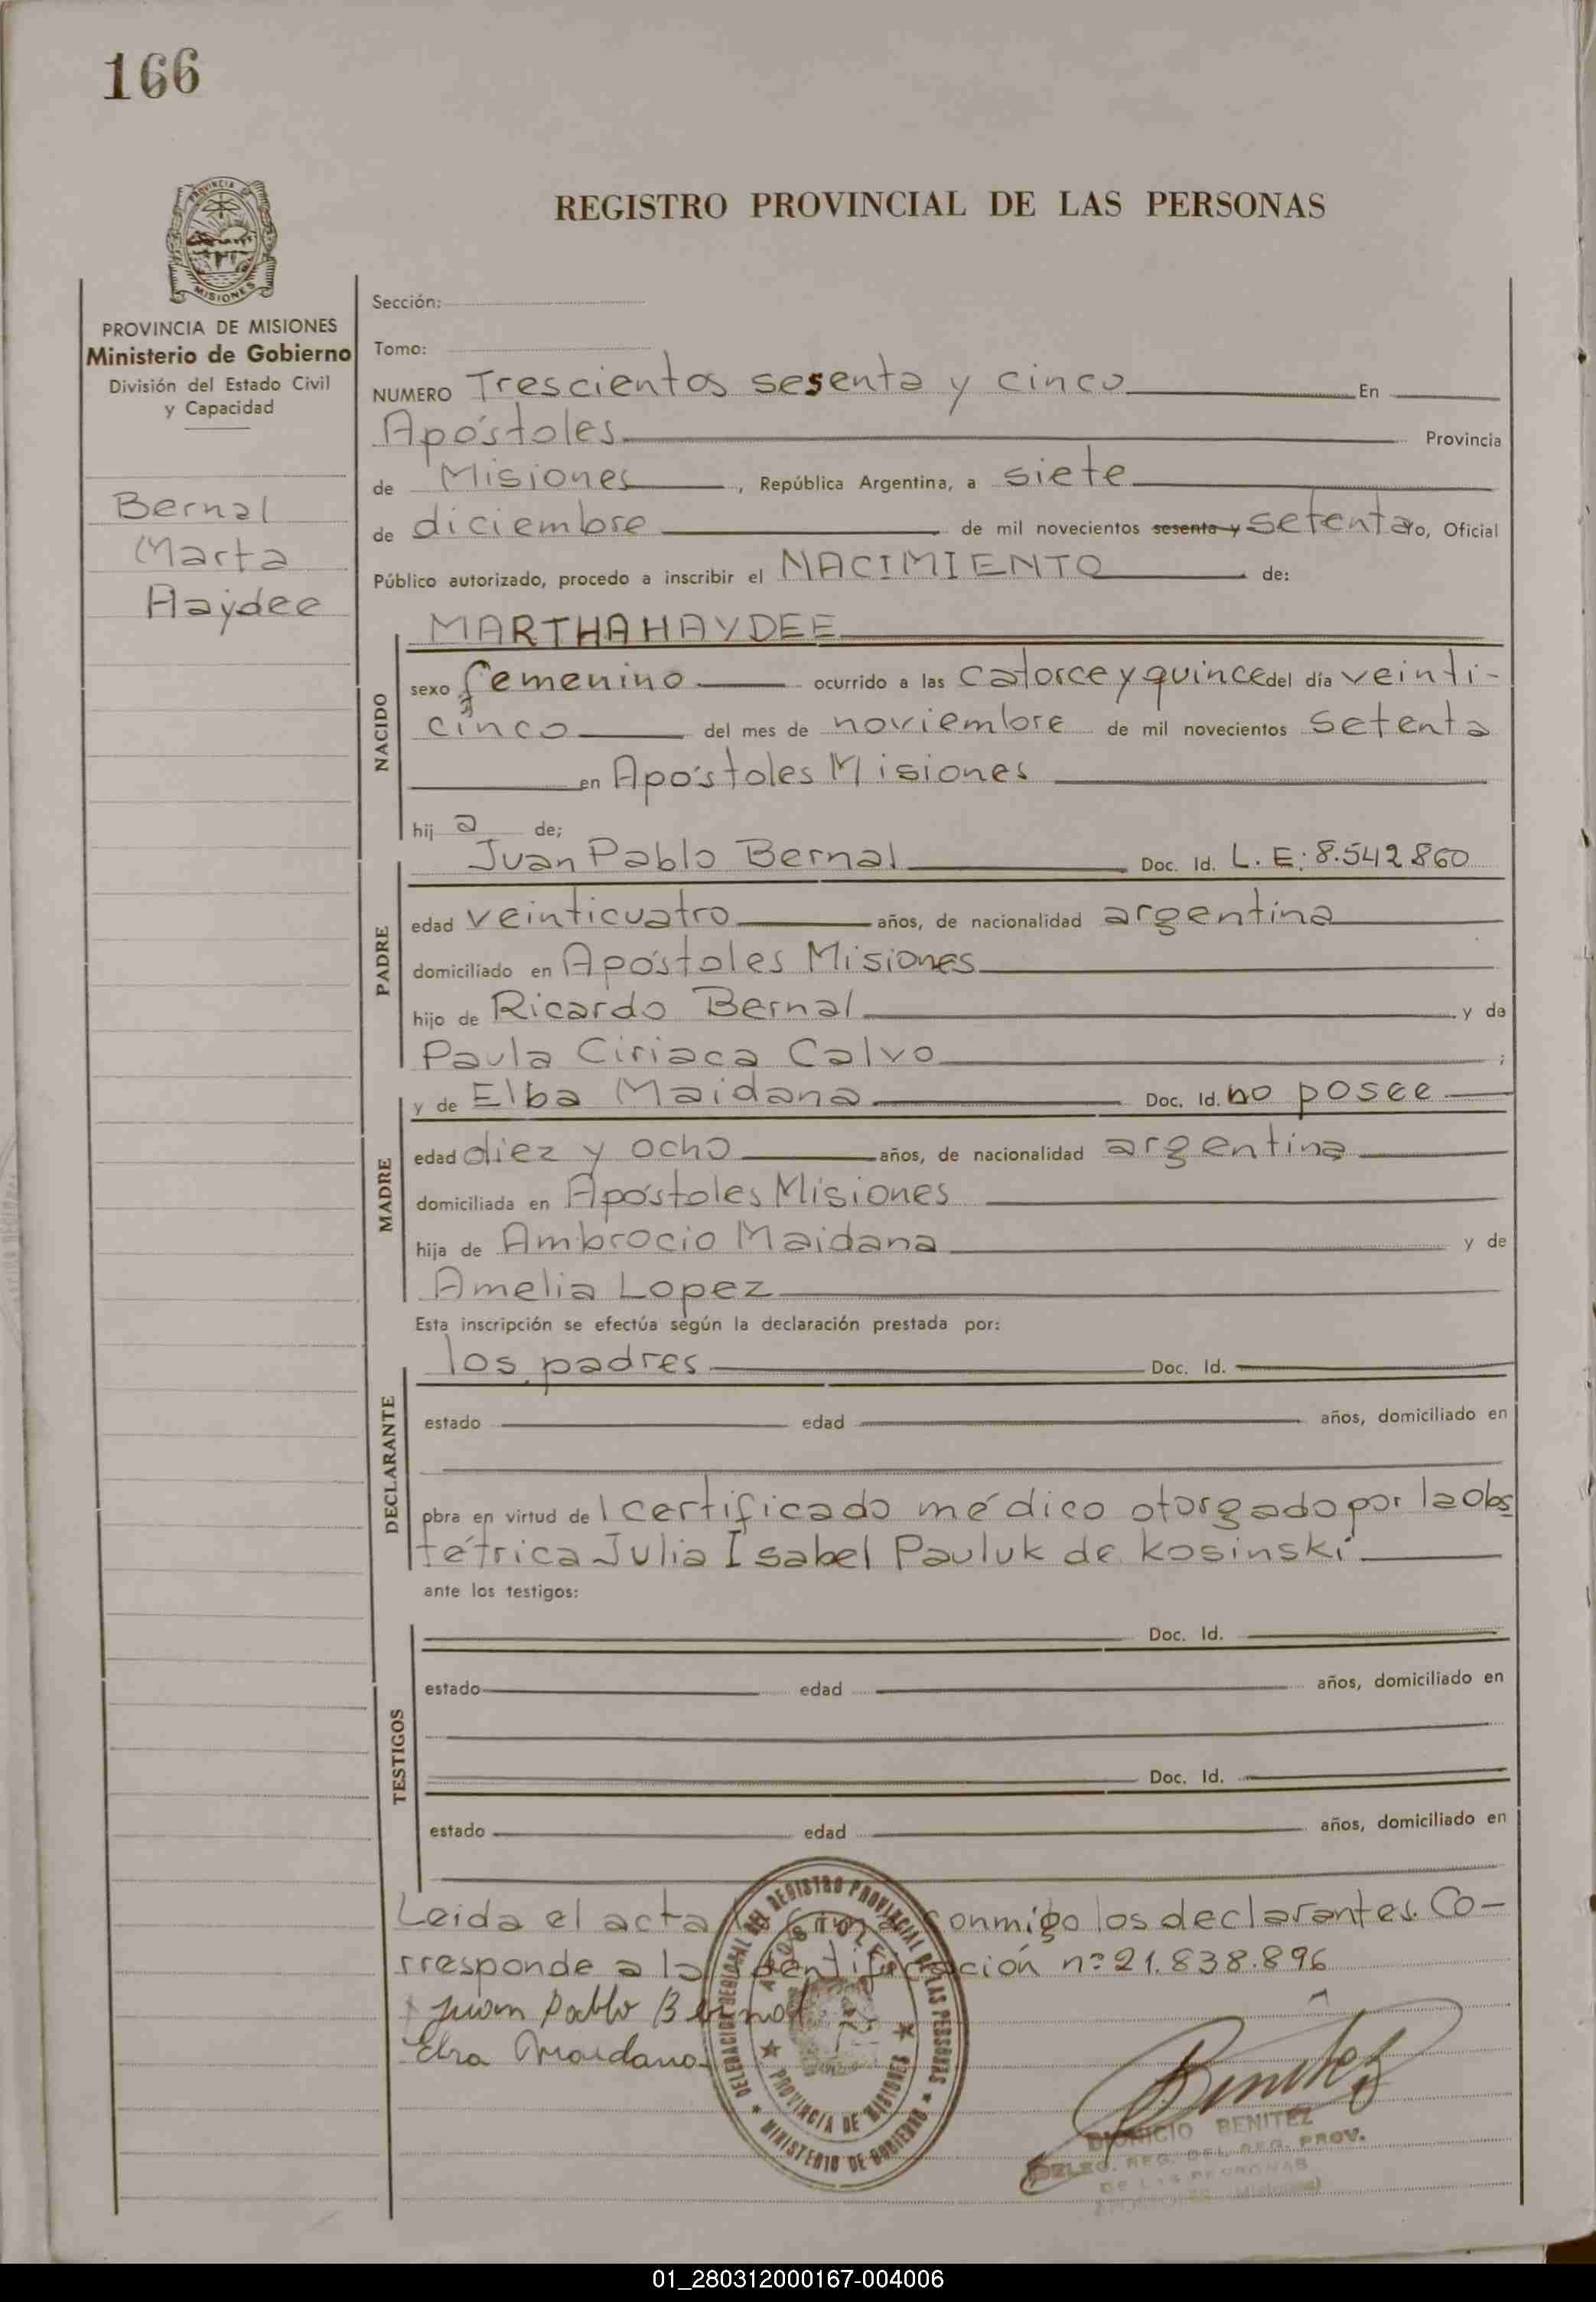 166
PROVINCIA DE
MISIONES
REGISTRO PROVINCIAL DE LAS PERSONAS
PROVINCIA DE MISIONES
Ministerio de Gobierno
División del Estado Civil
y Capacidad
Bernal
Marta
Haydee
Sección:
Tomo:
NUMERO Trescientos sesenta y cinco En
Apóstoles Provincia
de Misiones, República Argentina, a siete
de diciembre de mil novecientos sesenta y setenta yo, Oficial
Público autorizado, procedo a inscribir el NACIMIENTO de:
NACIDO
MARTHA HAYDEE
sexo femenino ocurrido a las catorce y quince del día veinti-
cinco del mes de noviembre de mil novecientos setenta
en Apóstoles Misiones
hij a de;
PADRE
Juan Pablo Bernal Doc. Id. L. E: 8.542.860
edad veinticuatro años, de nacionalidad argentina
domiciliado en Apóstoles Misiones
hijo de Ricardo Bernal y de
Paula Ciriaca Calvo ;
MADRE
y de Elba Maidana Doc. Id. no posee
edad diez y ocho años, de nacionalidad argentina
domiciliada en Apóstoles Misiones
hija de Ambrocio Maidana y de
Amelia Lopez
Esta inscripción se efectúa según la declaración prestada por:
DECLARANTE
los padres Doc. Id.
estado edad años, domiciliado en
obra en virtud de l certificado médico otorgado por la Obs
tétrica Julia Isabel Pauluk de Kosinski
ante los testigos:
TESTIGOS
Doc. Id.
estado edad años, domiciliado en
Doc. Id.
estado edad años, domiciliado en
Leida el acta la firma conmigo los declarantes. Co-
rresponde a la identificación nº 21.838.896
Juan Pablo Bernal
Elva Maidana
DELEGACION REGIONAL DEL REGISTRO PROVINCIAL DE LAS PERSONAS
MINISTERIO DE GOBIERNO
APOSTOLES
PROVINCIA DE MISIONES
Benitez
DIONICIO BENITEZ
DELEG. REG. DEL REG. PROV.
DE LAS PERSONAS
01_280312000167-004006